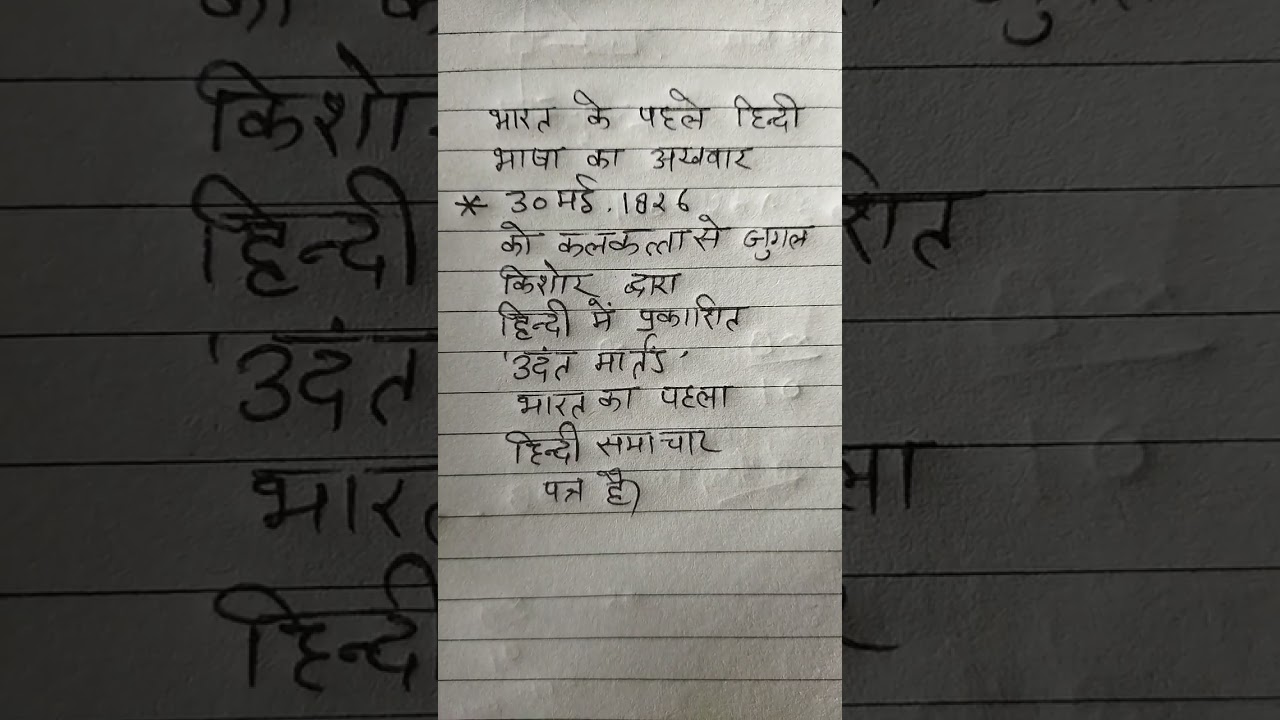 भारत के पहले हिन्दी
भाषा का अखवार
* 30 मई . 1826
को कलकत्ता से जुगल
किशोर द्वारा
हिन्दी में प्रकाशित
'उदंत मार्तंड'
भारत का पहला
हिन्दी समाचार
पत्र है)